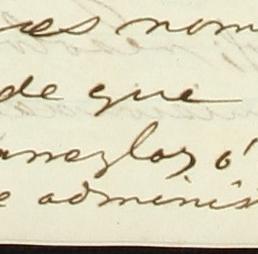 es nom
de que
arreglos ó
e adminis